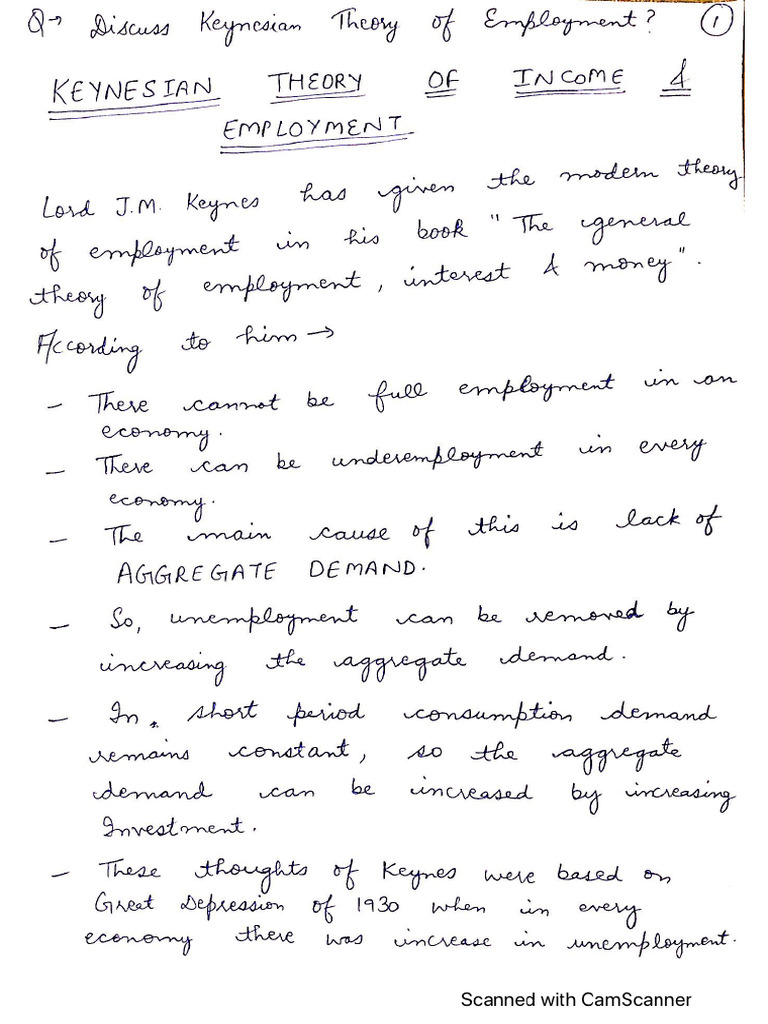 Q→ Discuss Keynesian Theory of Employment? 1
KEYNESIAN THEORY OF INCOME &
EMPLOYMENT
Lord J.M. Keynes has given the modern theory
of employment in his book "The general
theory of employment, interest & money".
According to him →
- There cannot be full employment in an
economy.
- There can be underemployment in every
economy.
- The main cause of this is lack of
AGGREGATE DEMAND.
- So, unemployment can be removed by
increasing the aggregate demand.
- In short period consumption demand
remains constant, so the aggregate
demand can be increased by increasing
Investment.
- These thoughts of Keynes were based on
Great Depression of 1930 when in every
economy there was increase in unemployment.
Scanned with CamScanner